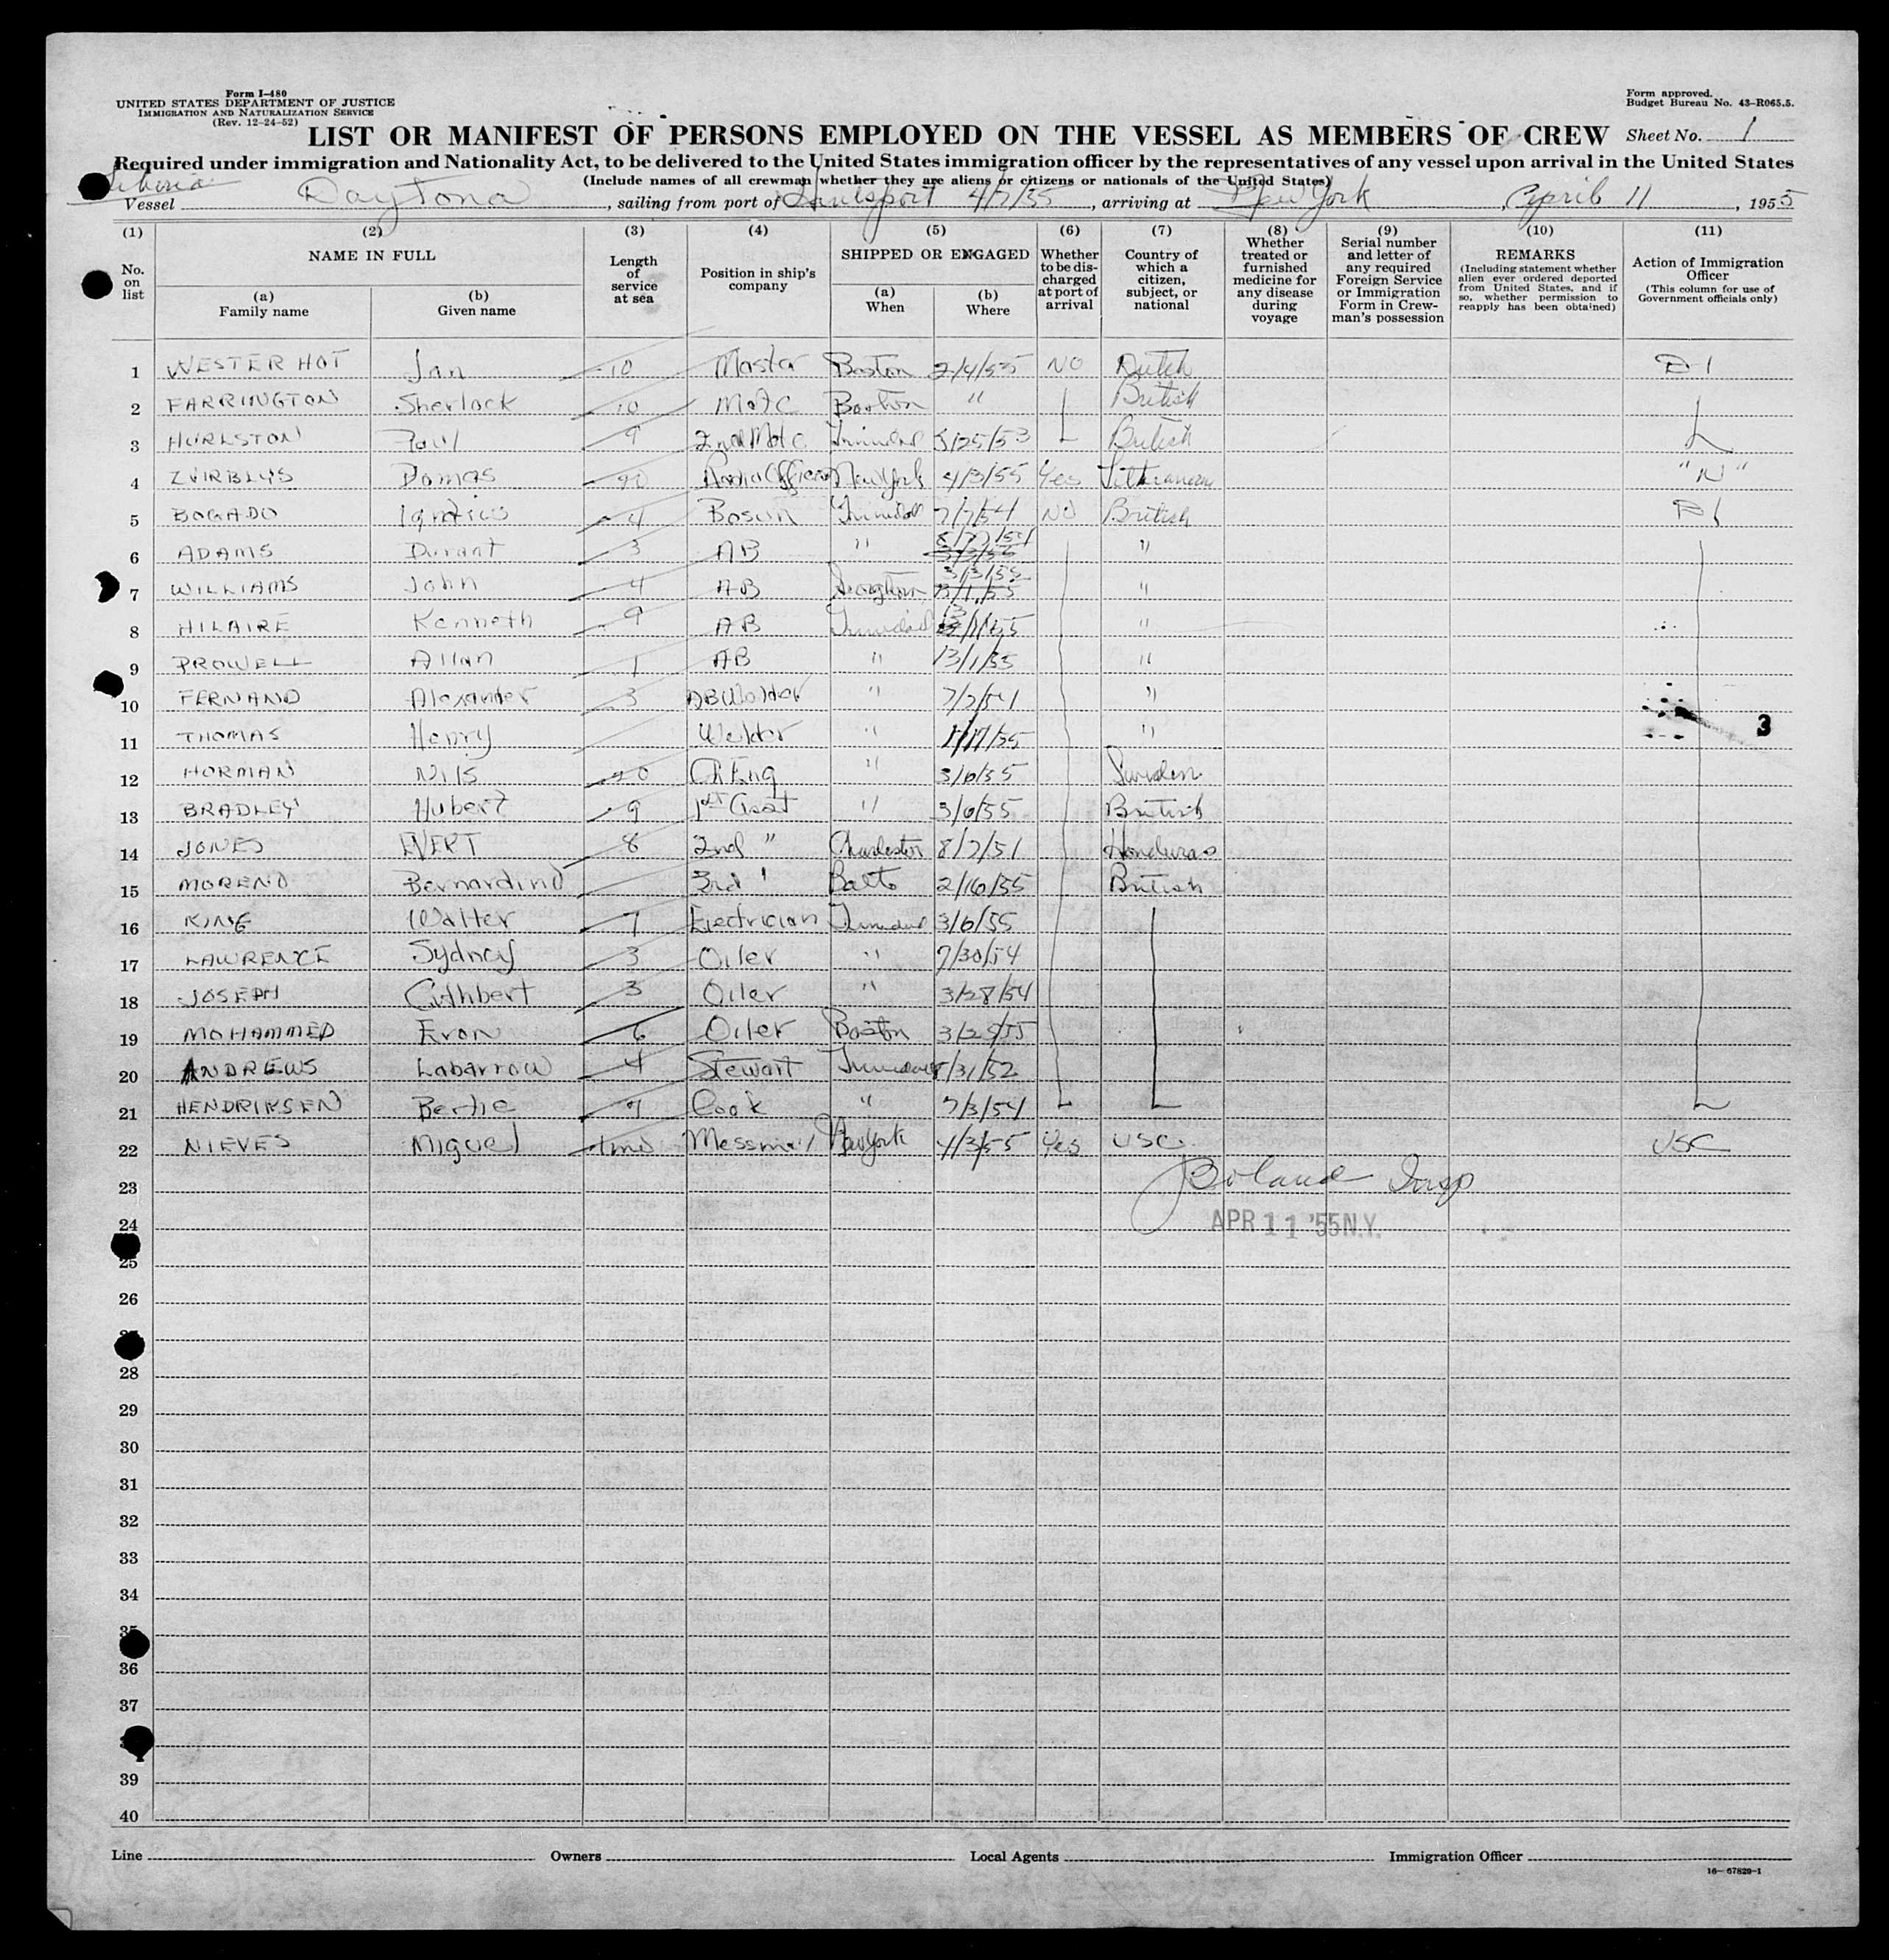 Form I-480
UNITED STATES DEPARTMENT OF JUSTICE
IMMIGRATION AND NATURALIZATION SERVICE
(Rev. 12-24-52)
Form approved.
Budget Bureau No. 43-R065.5.
LIST OR MANIFEST OF PERSONS EMPLOYED ON THE VESSEL AS MEMBERS OF CREW Sheet No. 1
Required under immigration and Nationality Act, to be delivered to the United States immigration officer by the representatives of any vessel upon arrival in the United States
(Include names of all crewman whether they are aliens or citizens or nationals of the United States)
Liberia
Vessel Daytona, sailing from port of Hantsport 4/7/55, arriving at New York, April 11, 1955
(1) (2) (3) (4) (5) (6) (7) (8) (9) (10) (11)
No. on list
NAME IN FULL
(a) Family name
(b) Given name
Length of service at sea
Position in ship's company
SHIPPED OR ENGAGED
(a) When
(b) Where
Whether to be discharged at port of arrival
Country of which a citizen, subject, or national
Whether treated or furnished medicine for any disease during voyage
Serial number and letter of any required Foreign Service or Immigration Form in Crewman's possession
REMARKS
(Including statement whether alien ever ordered deported from United States, and if so, whether permission to reapply has been obtained)
Action of Immigration Officer
(This column for use of Government officials only)
1 WESTER HOT Jan 10 Master Boston 2/4/55 NO Dutch D-1
2 FARRINGTON Sherlock 10 Mate Boston " British
3 HURLSTON Paul 9 2nd Mate Trinidad 5/25/53 British
4 ZVIRBLYS Domas 20 Radio Officer New York 4/3/55 Yes Lithuanian "N"
5 BOGADO Ignatius 4 Bosun Trinidad 7/7/54 NO British D1
6 ADAMS Durant 3 AB " "
7 WILLIAMS John 4 AB Georgetown 3/3/55 "
8 HILAIRE Kenneth 9 AB Trinidad 13/1/55 "
9 PROWELL Allan 1 AB " 13/1/55 "
10 FERNAND Alexander 3 AB Welder " 7/7/54 "
11 THOMAS Henry Welder " 1/17/55 "
3
12 HORMAN Nils 20 Ch Eng " 3/6/55 Sweden
13 BRADLEY Hubert 9 1st Asst " 3/6/55 British
14 JONES EVERT 8 2nd " Charleston 8/7/51 Honduras
15 MORENO Bernardino 3rd " Balto 2/16/55 British
16 KING Walter 7 Electrician Trinidad 3/6/55
17 LAWRENCE Sydney 3 Oiler " 7/30/54
18 JOSEPH Cuthbert 3 Oiler " 3/28/54
19 MOHAMMED Evon 6 Oiler Boston 3/25/55
20 ANDREWS Labarrow 4 Stewart Trinidad /31/52
21 HENDRIKSEN Bertie 7 Cook " 7/3/54
22 NIEVES Miguel 1 mo Messman New York 4/3/55 Yes USC USC
23
Boland Insp
24
APR 11 '55 N.Y.
25
26
28
29
30
31
32
33
34
35
36
37
39
40
Line Owners Local Agents Immigration Officer
16—67829-1